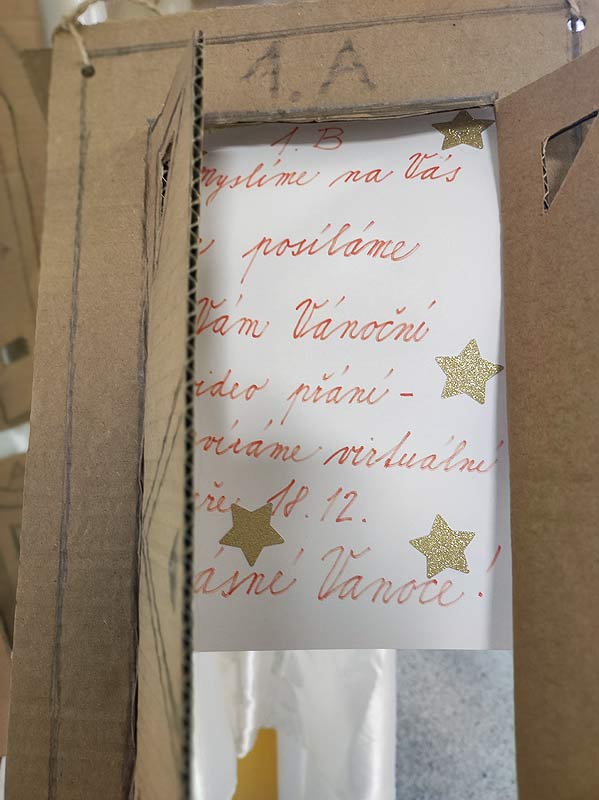 1. A
1. B
myslíme na Vás
posíláme
Vám Vánoční
video přání -
virtuálně
18.12.
Vánoce!